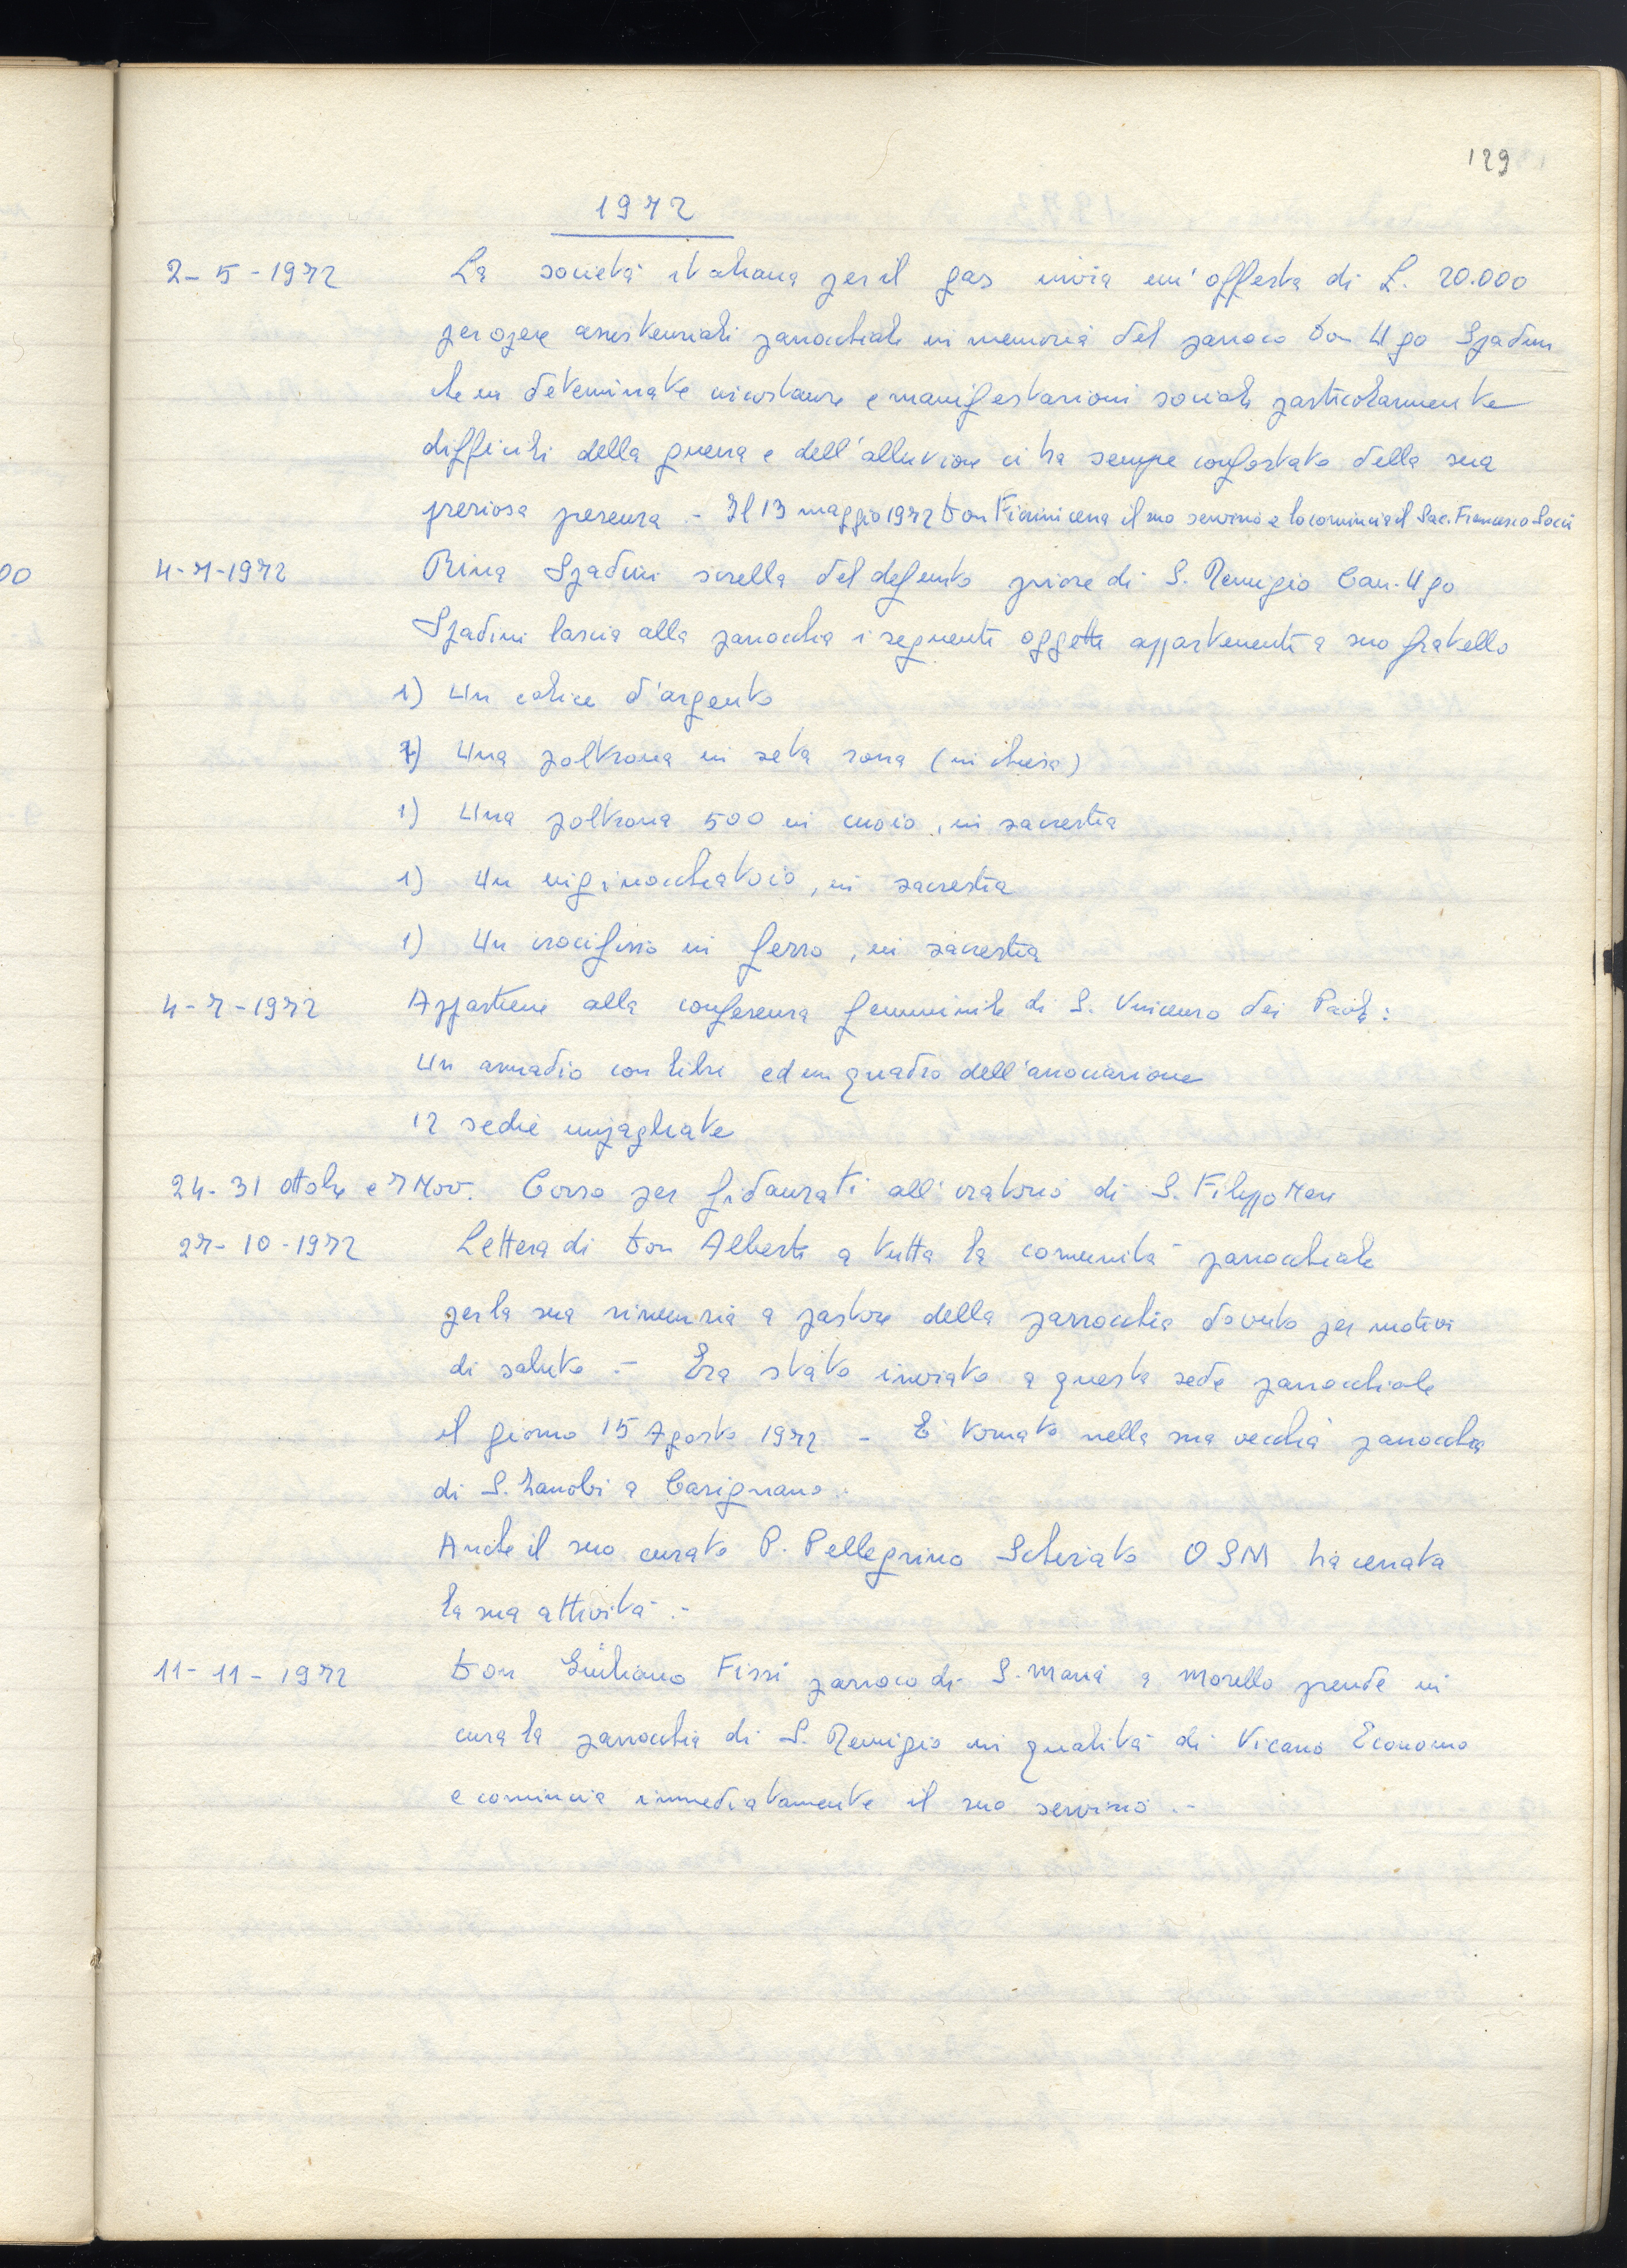 129
1972
2-5-1972 La società italiana per il gas invia un'offerta di L. 20.000
per opere assistenziali parrocchiali in memoria del parroco Don Ugo Spadini
che in determinate circostanze e manifestazioni sociali particolarmente
difficili della guerra e dell'alluvione ci ha sempre confortato della sua
preziosa presenza .- Il 13 maggio 1972 Don Fiorini cessa il suo servizio e lo comincia il Sac. Francesco Socci
00
4-7-1972 Rina Spadini sorella del defunto priore di S. Remigio Can. Ugo
Spadini lascia alla parrocchia i seguenti oggetti appartenenti a suo fratello
1) Un calice d'argento
1) Una poltrona in seta rossa (in chiesa)
1) Una poltrona 500 in cuoio, in sacrestia
1) Un inginocchiatoio, in sacrestia
1) Un crocifisso in ferro, in sacrestia
4-7-1972 Appartiene alla conferenza femminile di S. Vincenzo dei Paoli:
Un armadio con libri ed un quadro dell'associazione
12 sedie impagliate
24-31 ottobre e 7 Nov. Corso per fidanzati all'oratorio di S. Filippo Neri
27-10-1972 Lettera di Don Alberti a tutta la comunità parrocchiale
per la sua rinunzia a pastore della parrocchia dovuto per motivi
di salute .- Era stato inviato a questa sede parrocchiale
il giorno 15 Agosto 1972 - È tornato nella sua vecchia parrocchia
di S. Zanobi a Casignano.
Anche il suo curato P. Pellegrino OSM ha cessata
la sua attività .-
11-11-1972 Don Giuliano Fissi parroco di S. Maria a Morello prende in
cura la parrocchia di S. Remigio in qualità di Vicario Economo
e comincia immediatamente il suo servizio .-